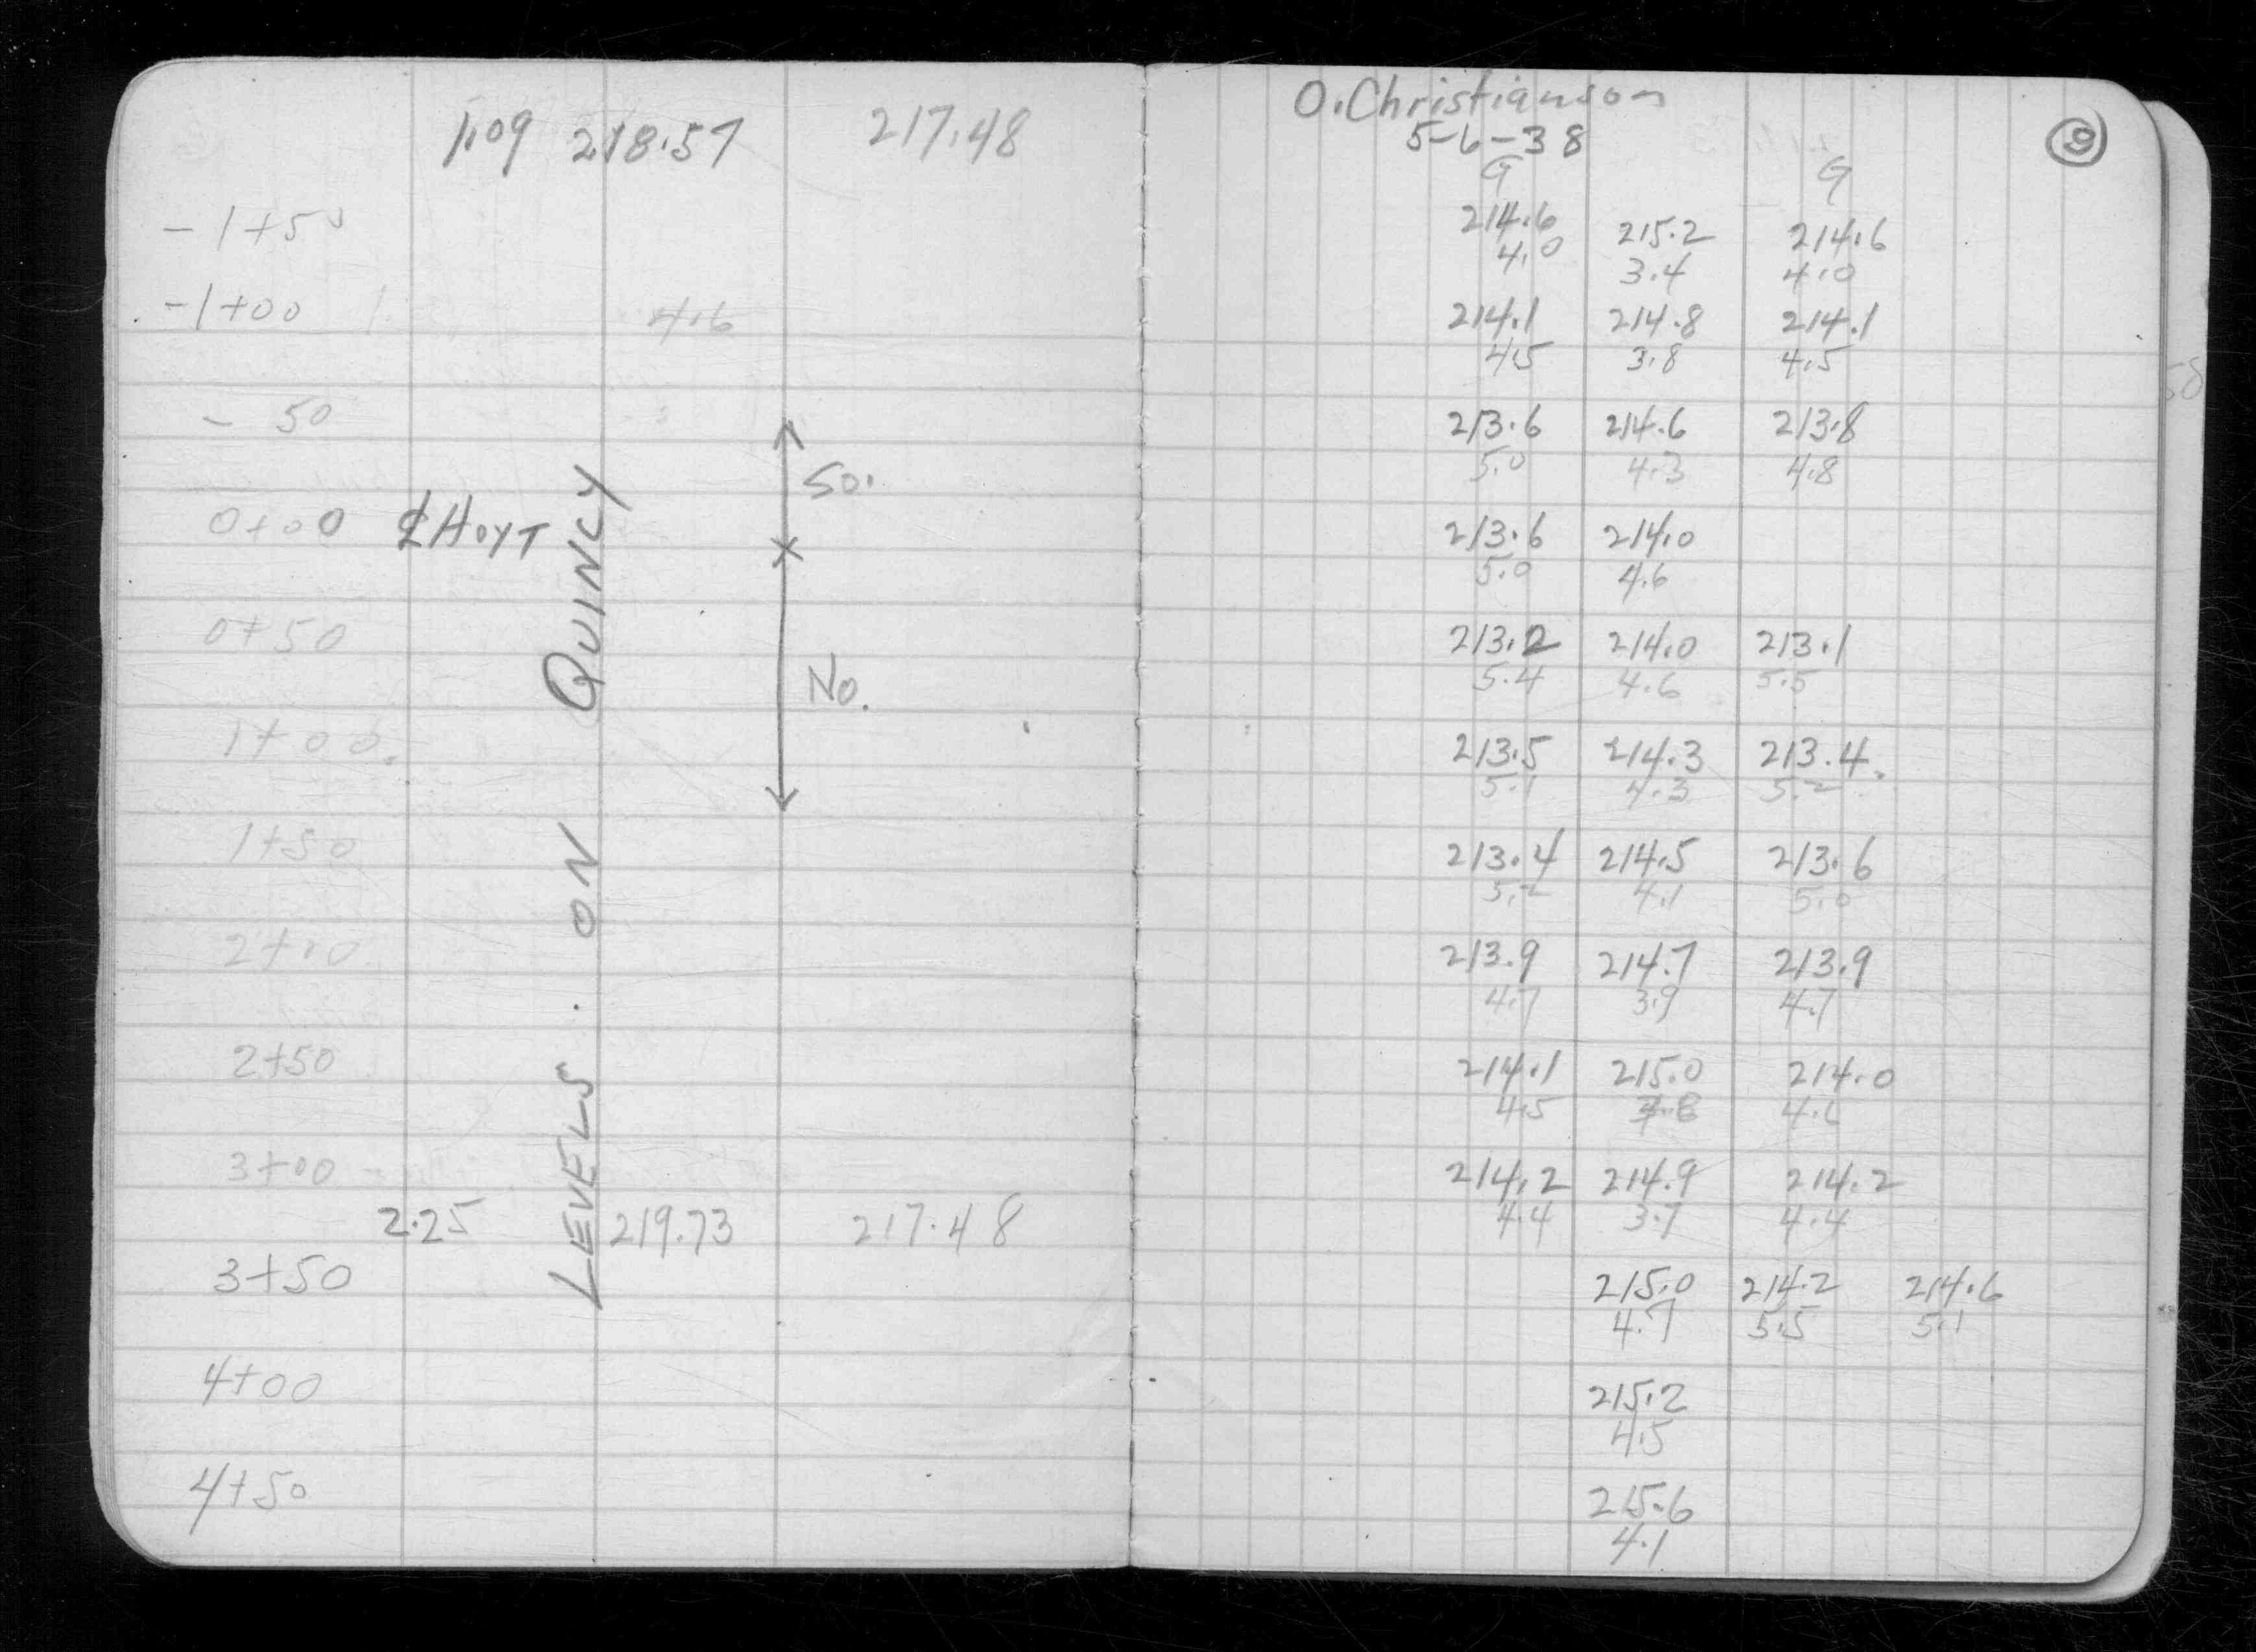 1.09 218.57 217.48
- 1+50
- 1+00 4.6
- 50
0+00 ℄ HOYT
0+50
1+00
1+50
2+00
2+50
3+00
2.25 219.73 217.48
3+50
4+00
4+50
LEVELS ON QUINCY
So.
No.
O. Christianson
5-6-38
9
G G
214.6 215.2 214.6
4.0 3.4 4.0
214.1 214.8 214.1
4.5 3.8 4.5
213.6 214.6 213.8
5.0 4.3 4.8
213.6 214.0
5.0 4.6
213.2 214.0 213.1
5.4 4.6 5.5
213.5 214.3 213.4
5.1 4.3 5.2
213.4 214.5 213.6
5.2 4.1 5.0
213.9 214.7 213.9
4.7 3.9 4.7
214.1 215.0 214.0
4.5 4.6
214.2 214.9 214.2
4.4 3.7 4.4
215.0 214.2 214.6
4.7 5.5 5.1
215.2
4.5
215.6
4.1